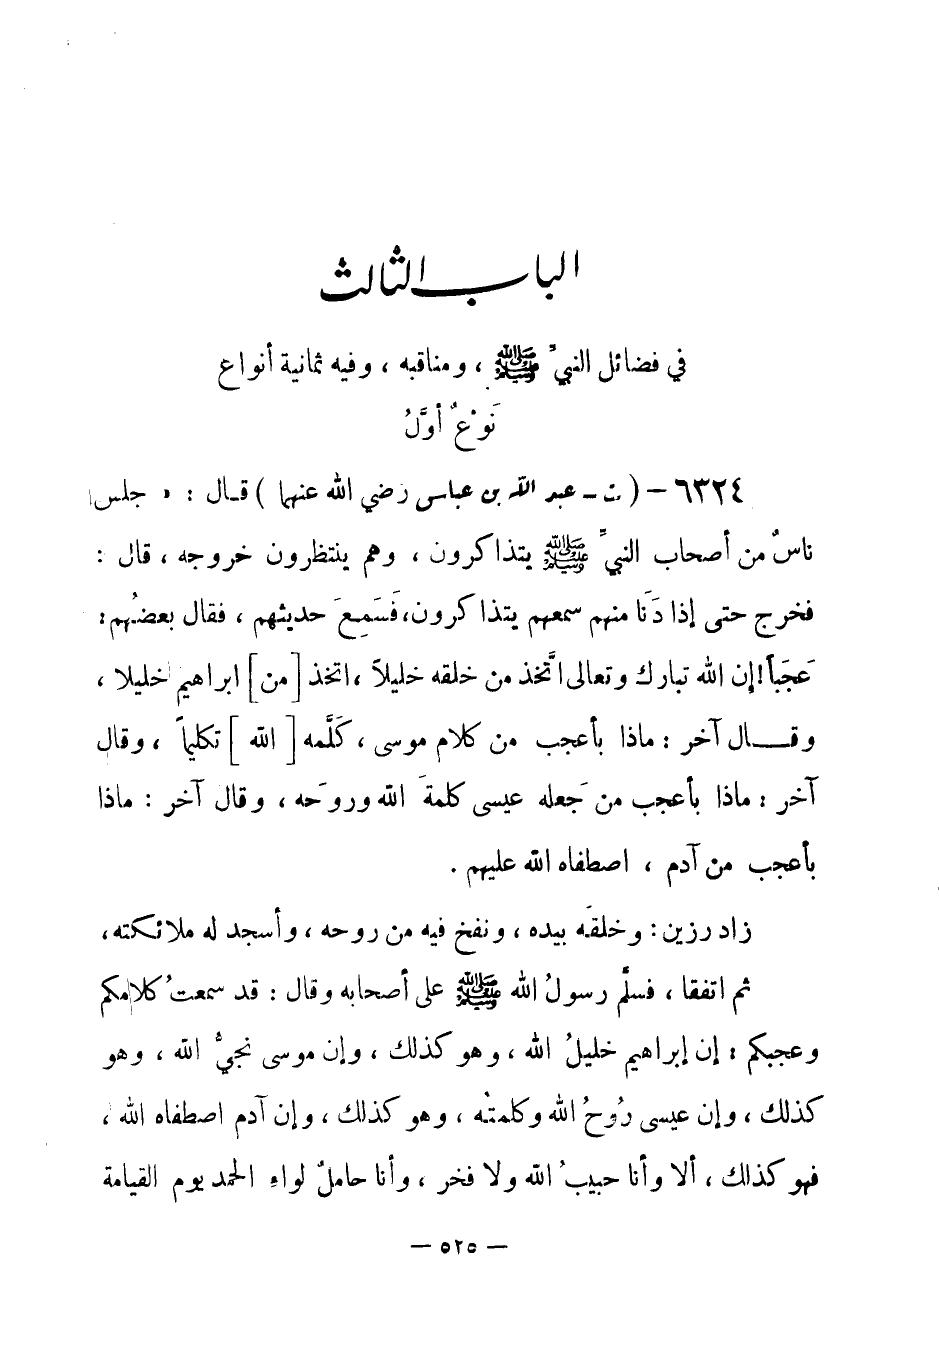 الباب الثالث
في فضائل النبيِّ ﷺ ، ومناقبه ، وفيه ثمانية أنواع
نَوْعٌ أوَّلُ
٦٣٢٤ – ( ت – عبد الله بن عباس رضي الله عنهما ) قـال : « جلس
ناسٌ من أصحاب النبيِّ ﷺ يتذاكرون ، وهم ينتظرون خروجه ، قال :
فخرج حتى إذا دَنَا منهم سمعهم يتذاكرون، فَسَمِعَ حديثهم ، فقال بعضُهم:
عَجَباً! إن الله تبارك وتعالى اتَّخذ من خلقه خليلاً ، اتخذ [من] ابراهيم خليلا ،
وقــــال آخر : ماذا بأعجب من كلام موسى ، كَلَّمه [ الله ] تكليماً ، وقال
آخر : ماذا بأعجب من جَعله عيسى كلمةَ الله وروحَه ، وقال آخر : ماذا
بأعجب من آدم ، اصطفاه الله عليهم .
زاد رزين : وخلقَه بيده ، ونفخ فيه من روحه ، وأسجد له ملائكته ،
ثم اتفقا ، فسلَّم رسولُ الله ﷺ على أصحابه وقال : قد سمعتُ كلامكم
وعجبكم : إن إبراهيم خليلُ الله ، وهو كذلك ، وإن موسى نجيُّ الله ، وهو
كذلك ، وإن عيسى رُوحُ الله وكلمتُه ، وهو كذلك ، وإن آدم اصطفاه الله ،
فهو كذلك ، ألا وأنا حبيبُ الله ولا فخر ، وأنا حاملُ لواءِ الحمد يوم القيامة
– ٥٢٥ –